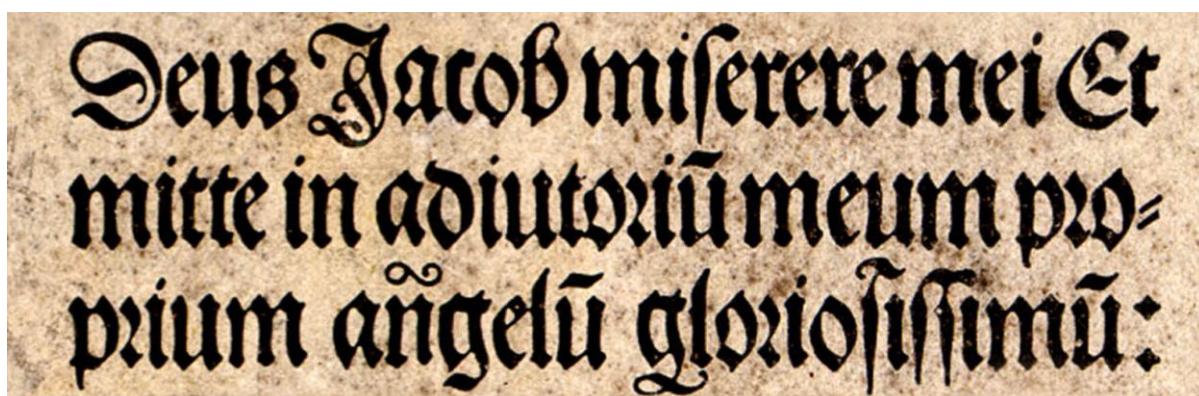 Deus Jacob miſerere mei Et
mitte in adiutoriū meum pro⸗
prium añgelū glorioſiſſimū: